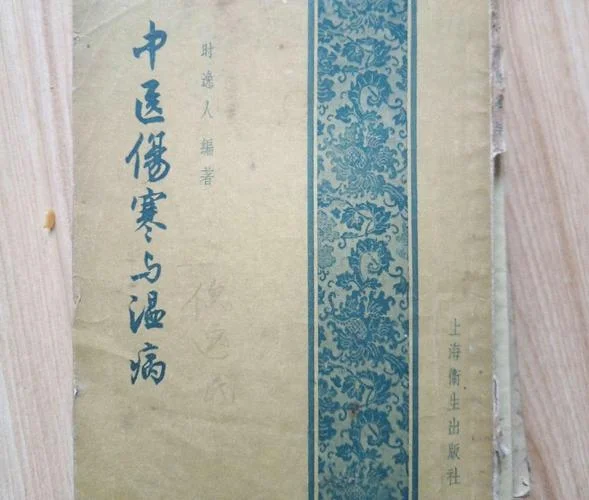 中医傷寒与温病
时逸人編著
上海衞生出版社